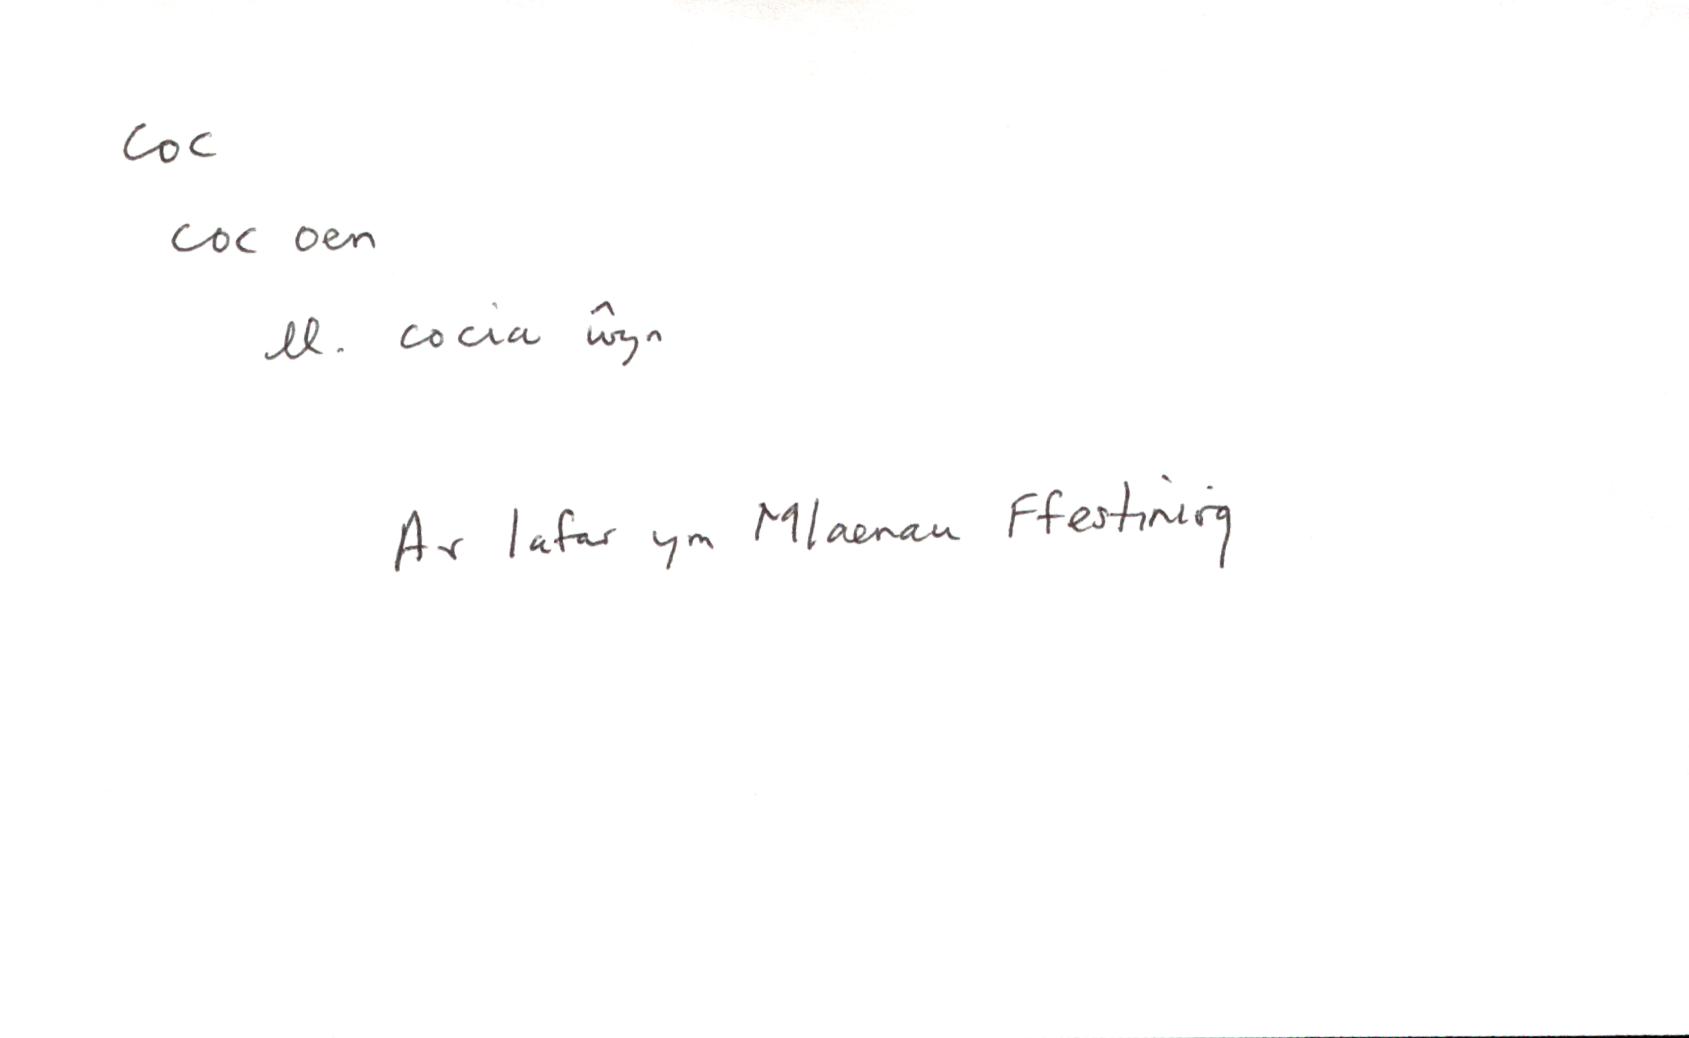 coc
coc oen
ll. cocia ŵyn
Ar lafar ym Mlaenau Ffestiniog